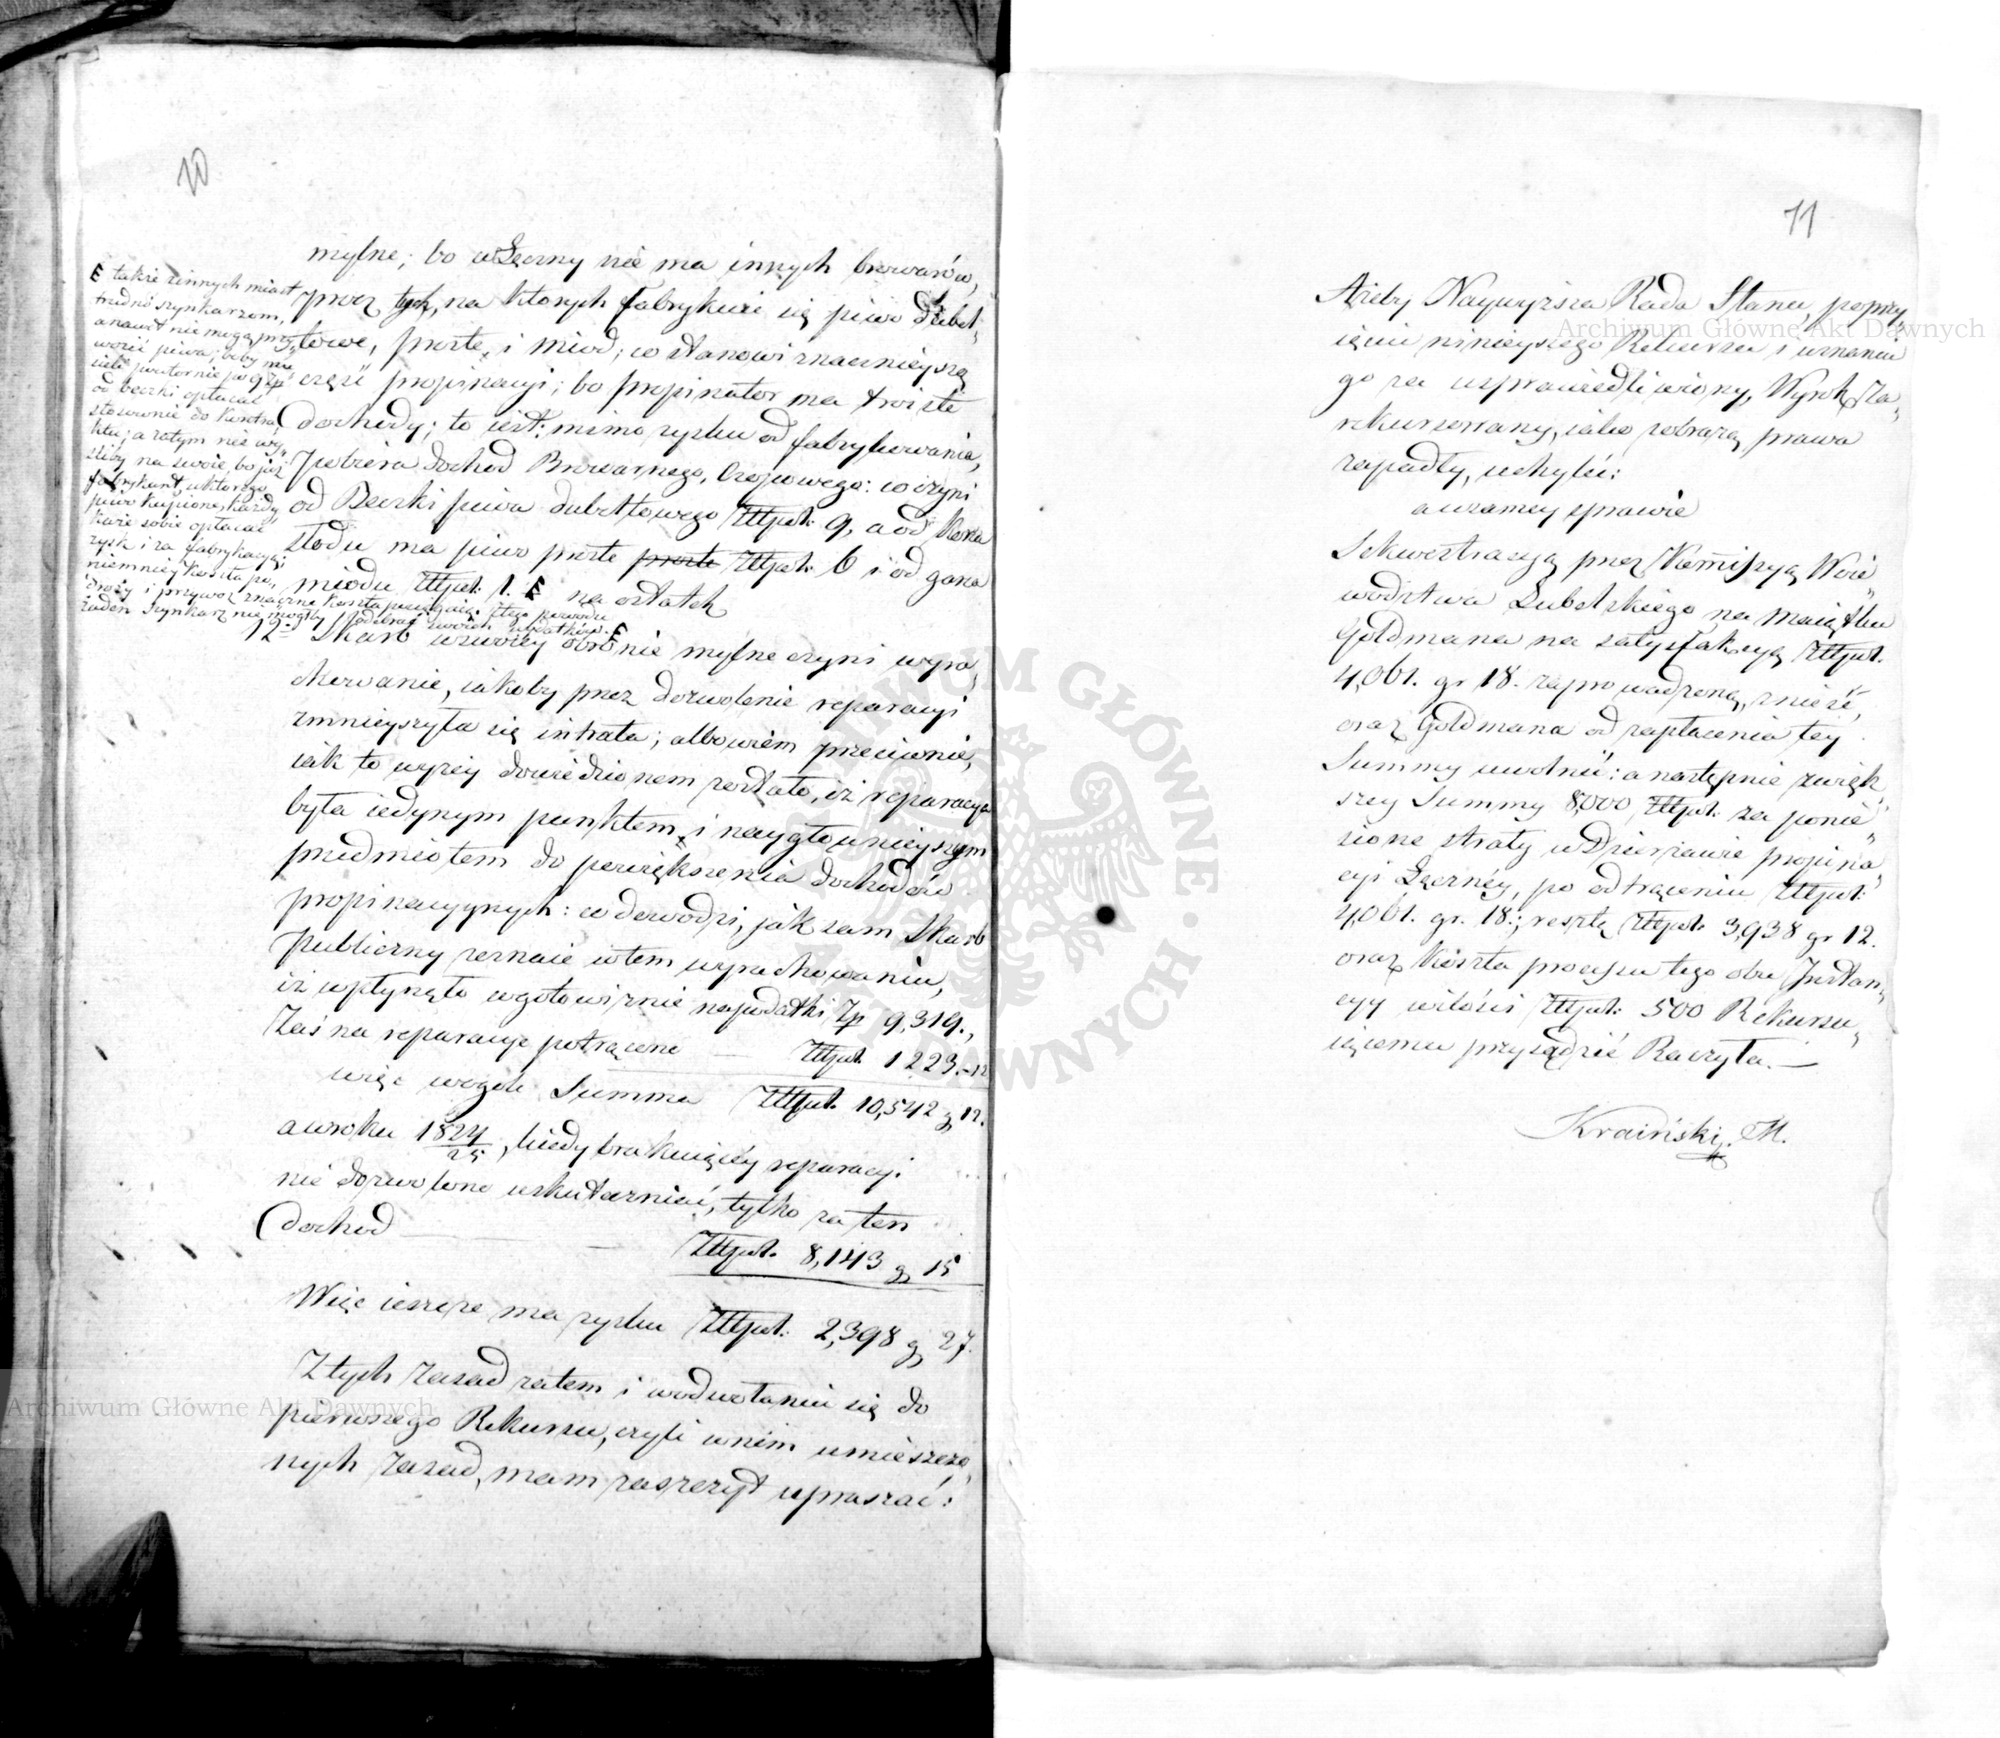 10
mylne; bo w Łęczny nie ma innych browarów,
prócz tych, na których fabrykuie się piwo dubel„
towe, proste, i miód; co stanowi znacznieyszą
część propinacyi; bo propinator ma troiste
dochody; to iest: mimo zysku od fabrykowania,
pobiera dochód Browarnego, Czopowego: co czyni
od Beczki piwa dubeltowego Złtpol: 9, a od Korca
słodu na piwo proste proste Złtpol: 6 i od garca
miodu Złtpol: 1. na ostatek
także z innych miast
trudno szynkarzom,
a nawet nie mogą przy„
wozić piwa; żeby nie
od beczki opłacać
stosownie do Kontra„
ktu; a zatym nie wy„
szliby na swoie, bo już
fabrykant u którego
piwo kupione, każdy
każe sobie opłacać
zysk i za fabrykacyą;
niemniey koszta po„
droży i przywóz znaczne koszta pociągaią. Z tego powodu
żaden Szynkarz nie mógłby odebrać swoich wydatków.
12º Skarb w swoiey obronie mylne czyni wyra„
chowanie, iakoby przez dozwolenie reparacyi
zmnieyszyła się intrata; albowiem przeciwnie,
iak to wyżey dowiedzionem zostało, iż reparacya
była iedynym punktem, i naygłównieyszym
przedmiotem do powiększenia dochodów
propinacyynych: co dowodzi, jak sam Skarb
publiczny zeznaie w tem wyrachowaniu,
iż wpłynęło w gotowiznie na podatki Zp 9,319.,
Zaś na reparacye potrącone — Złtpol. 1223.-12
więc wogóle Summa Złtpol. 10,542 g 12.
a w roku 1824/25, kiedy brakuiącéy reparacyi
nie dozwolono uskuteczniać, tylko za ten
dochód — — Złtpol. 8,143 g 15
Więc ieszcze ma zysku Złtpol: 2,398 g 27.
Z tych zasad zatem i w odwołaniu się do
pierwszego Rekursu, czyli w nim umieszczo„
nych zasad, mam zaszczyt upraszać:
11
Ażeby Naywyższa Rada Stanu, po przy„
ięciu ninieyszego Rekursu i uznaniu
go za usprawiedliwiony, Wyrok za„
rekursowany, iako z obrazą prawa
zapadły, uchylić:
a w samey sprawie
Sekwestracyą przez Kommissyą Woie„
wództwa Lubelskiego na maiątku
Goldmana na satysfakcyą Złtpol.
4,061. gr 18. zaprowadzoną, znieść,
oraz Goldmana od zapłacenia tey
Summy uwolnić: a następnie z więk„
szey Summy 8,000 Złtpol. za ponie„
sione straty w Dzierżawie propina„
cyi Łęcznéy, po odtrąceniu Złtpol:
4,061. gr. 18.; resztę Złtpol. 3,938 gr 12.
oraz koszta processu tego obu Instan„
cyy w ilości Złtpol: 500 Rekursu„
iącemu przysądzić Raczyła.—
Kraiński M.
Archiwum Główne Akt Dawnych
Archiwum Główne Akt Dawnych
ARCHIWUM GŁÓWNE AKT DAWNYCH